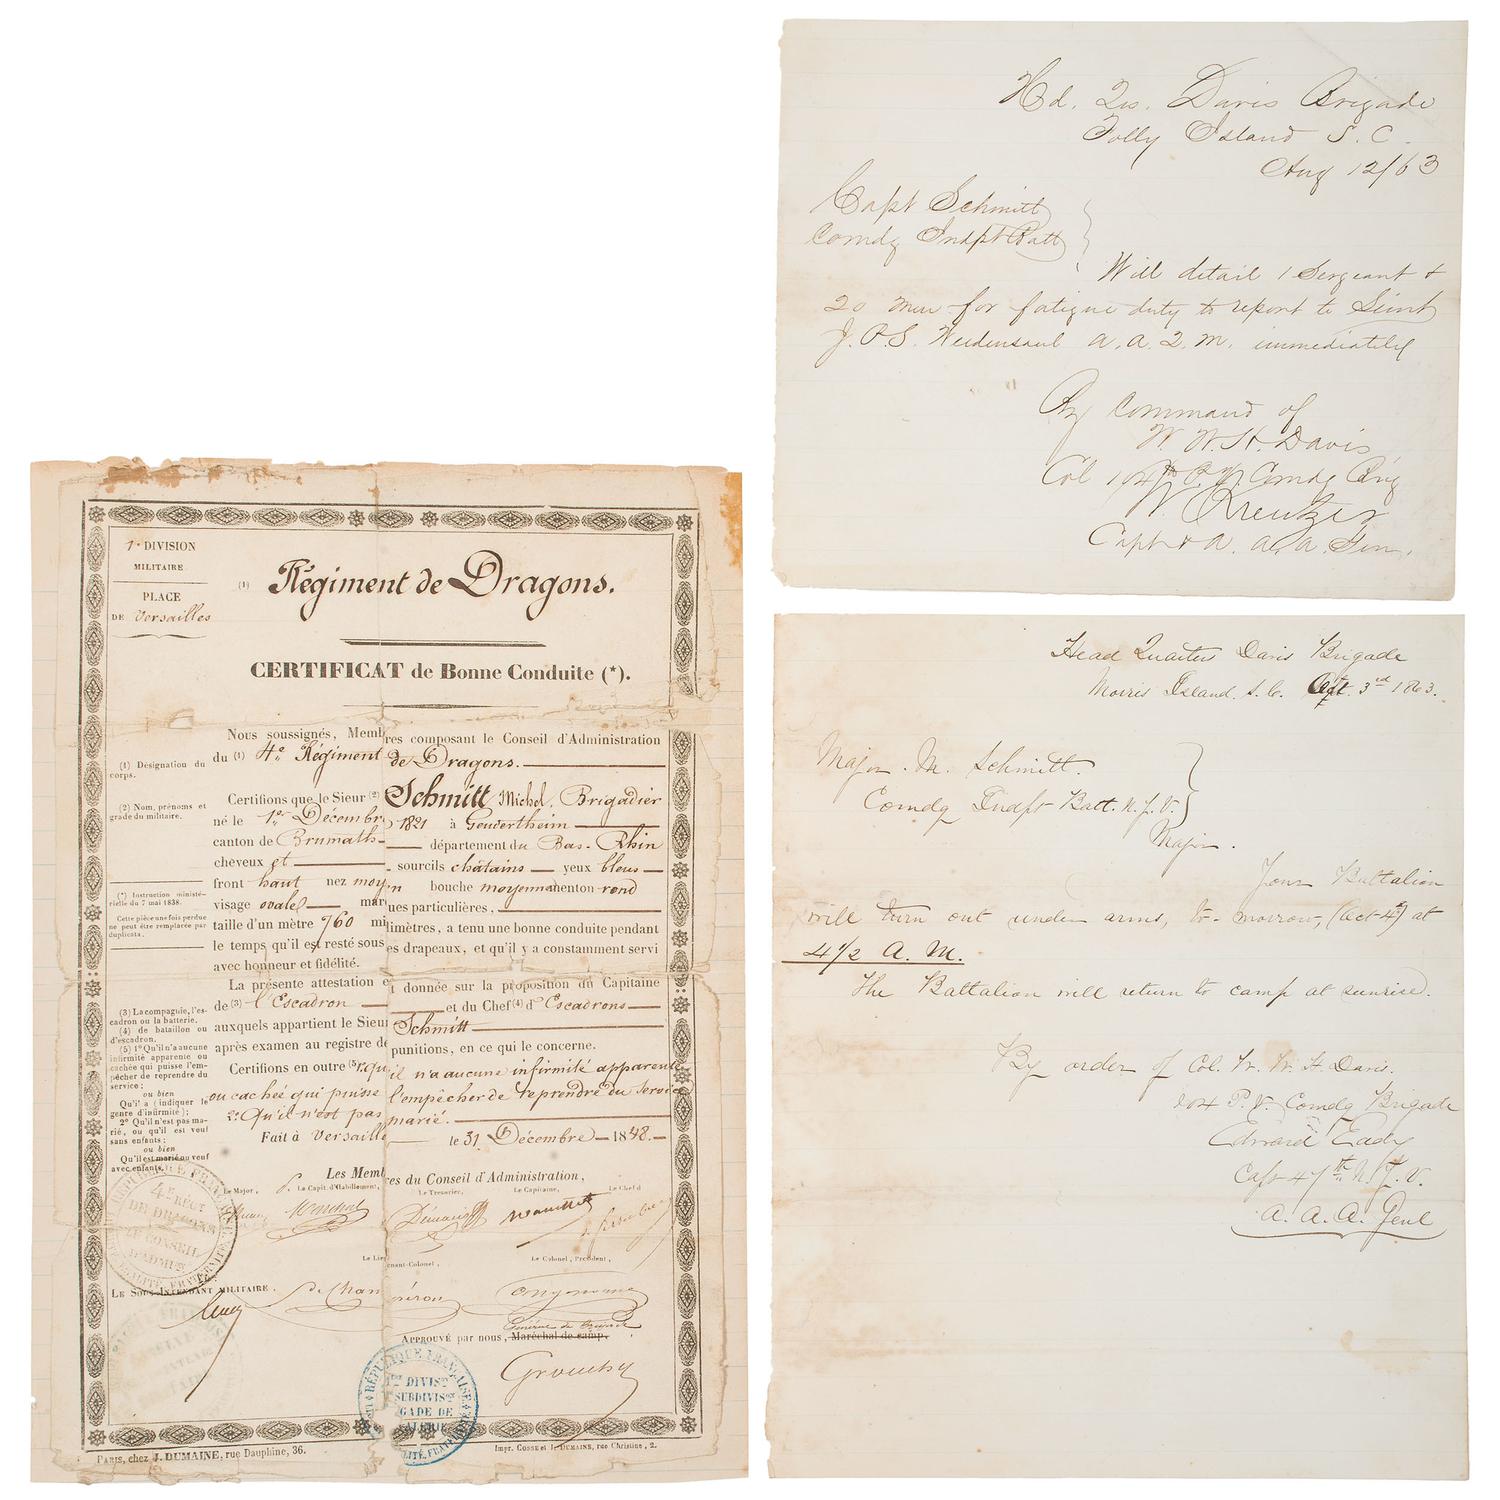 Hd. Qrs. Davis Brigade
Folly Island S. C.
Aug 12/63
Capt Schmitt
Comdg Indpt Batt
Will detail 1 Sergeant &
20 men for fatigue duty to report to Lieut
J. P. S. Weidensaul A. A. Q. M. immediately
By command of
W. W. H. Davis
Col 104th P. V. Comdg Brig
W. Kreutzer
Capt & A. A. A. Gen.
Head Quarters Davis Brigade
Morris Island. S. C. Oct. 3rd 1863.
Major. M. Schmitt.
Comdg Indpt Batt. N. Y. V.
Major.
Your Battalion
will turn out under arms, to-morrow, (Oct 4th) at
4 1/2 A. M.
The Battalion will return to camp at sunrise.
By order of Col. W. W. H. Davis.
104 P. V. Comdg Brigade
Edward Eddy
Capt 47th N. Y. V.
A. A. A. Genl
1e DIVISION
MILITAIRE
PLACE
DE Versailles
(1) Régiment de Dragons.
CERTIFICAT de Bonne Conduite (*).
Nous soussignés, Membres composant le Conseil d'Administration
du (1) 4e Régiment de Dragons.
Certifions que le Sieur (2) Schmitt Michel, Brigadier
né le 1er Décembre 1821 à Geudertheim
canton de Brumath département du Bas-Rhin
cheveux et sourcils châtains yeux bleus
front haut nez moyen bouche moyenne menton rond
visage ovale marques particulières,
taille d'un mètre 760 millimètres, a tenu une bonne conduite pendant
le temps qu'il est resté sous les drapeaux, et qu'il y a constamment servi
avec honneur et fidélité.
La présente attestation est donnée sur la proposition du Capitaine
de (3) l'Escadron et du Chef (4) d'Escadrons
auxquels appartient le Sieur Schmitt
après examen au registre de punitions, en ce qui le concerne.
Certifions en outre (5) 1° qu'il n'a aucune infirmité apparente
ou cachée qui puisse l'empêcher de reprendre du service
2° Qu'il n'est pas marié.
Fait à Versailles le 31 Décembre 1848.
(1) Désignation du
corps.
(2) Nom, prénoms et
grade du militaire.
(*) Instruction ministé-
rielle du 7 mai 1838.
Cette pièce une fois perdue
ne peut être remplacée par
duplicata.
(3) La compagnie, l'es-
cadron ou la batterie.
(4) de bataillon ou
d'escadron.
(5) 1° Qu'il n'a aucune
infirmité apparente ou
cachée qui puisse l'em-
pêcher de reprendre du
service;
ou bien
Qu'il a (indiquer le
genre d'infirmité);
2° Qu'il n'est pas ma-
rié, ou qu'il est veuf
sans enfants;
ou bien
Qu'il est marié ou veuf
avec enfants.
Les Membres du Conseil d'Administration,
Le Major, Le Capit. d'Habillement, Le Trésorier, Le Capitaine, Le Chef d
Le Lieutenant-Colonel, Le Colonel, Président,
LE SOUS-INTENDANT MILITAIRE.
APPROUVÉ par nous, Maréchal de camp.
Général de Brigade
Grouchy
4E REGT
DE DRAGONS
LE CONSEIL
D'ADMON
RÉPUBLIQUE FRANÇAISE
1RE DIVISON
SUBDIVISON
PARIS, chez J. DUMAINE, rue Dauphine, 36.
Impr. COSSE et J. DUMAINE, rue Christine, 2.